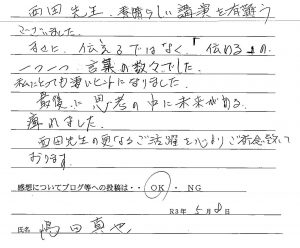 西田先生、素晴らしい講演を有難う
ございました。
まさに、伝えるではなく、「伝わる」の
一つ一つ 言葉の数々でした。
私にとっても凄いヒントになりました。
最後に 思考の中に未来がある。
痺れました。
西田先生の更なるご活躍を心よりご祈念されて
おります。
感想についてブログ等への投稿は・・OK・NG
R3年 5月8日
氏名 嶋田真也